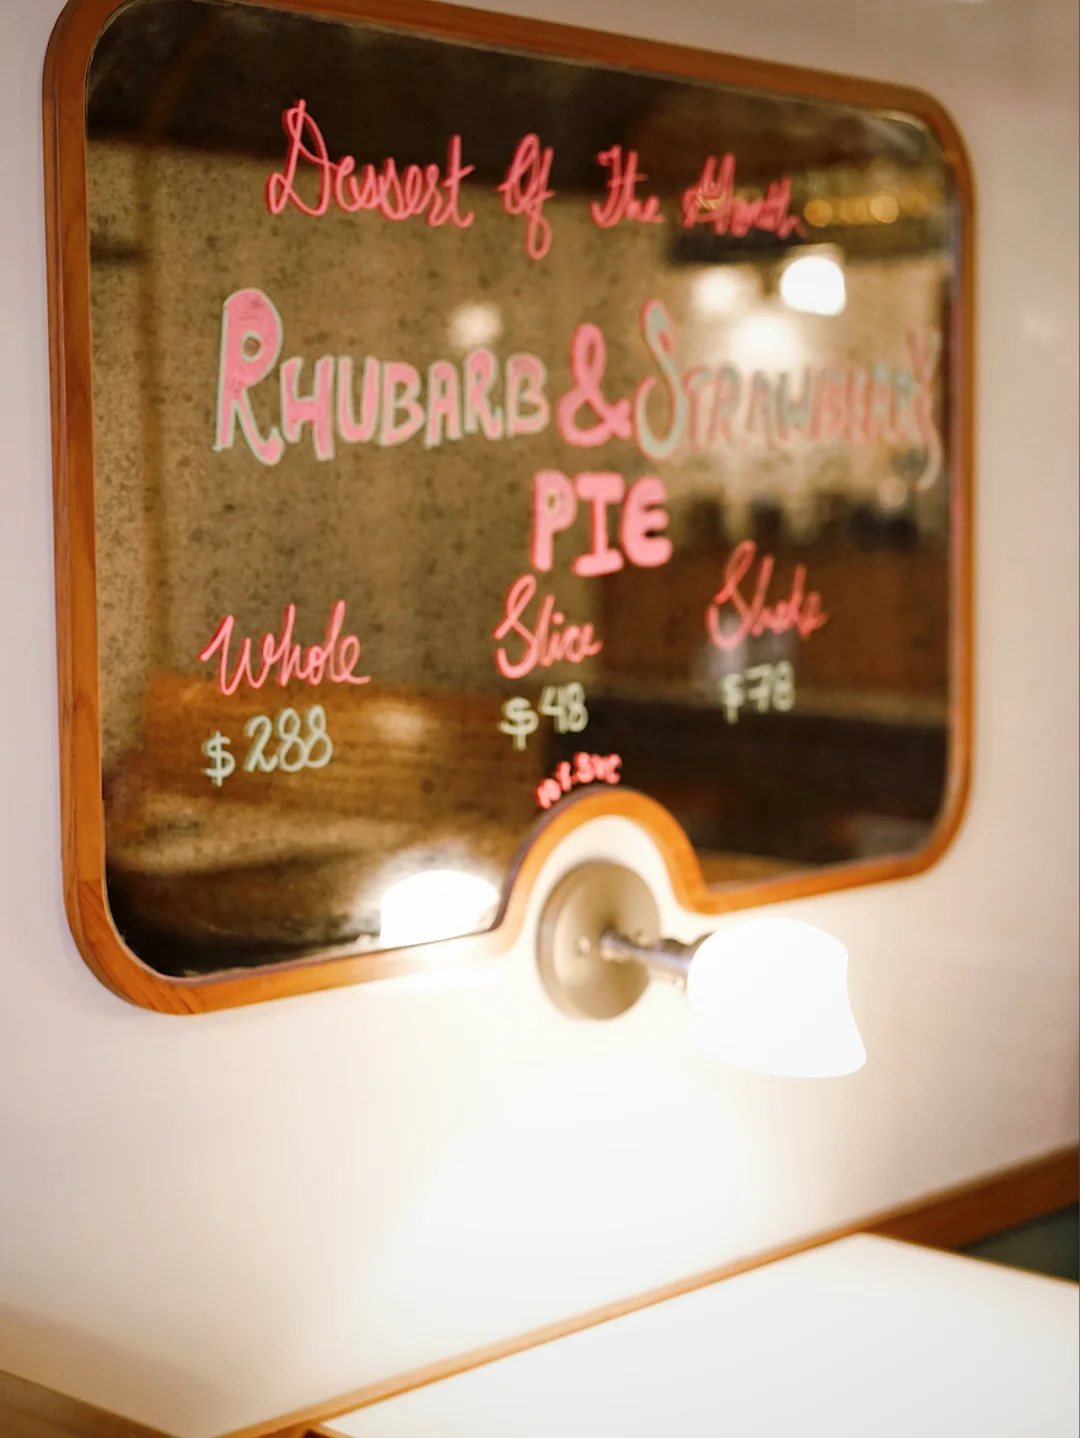 Dessert Of The Month
RHUBARB & STRAWBERRY
PIE
Whole Slice Shake
$288 $48 $78
10% SVC